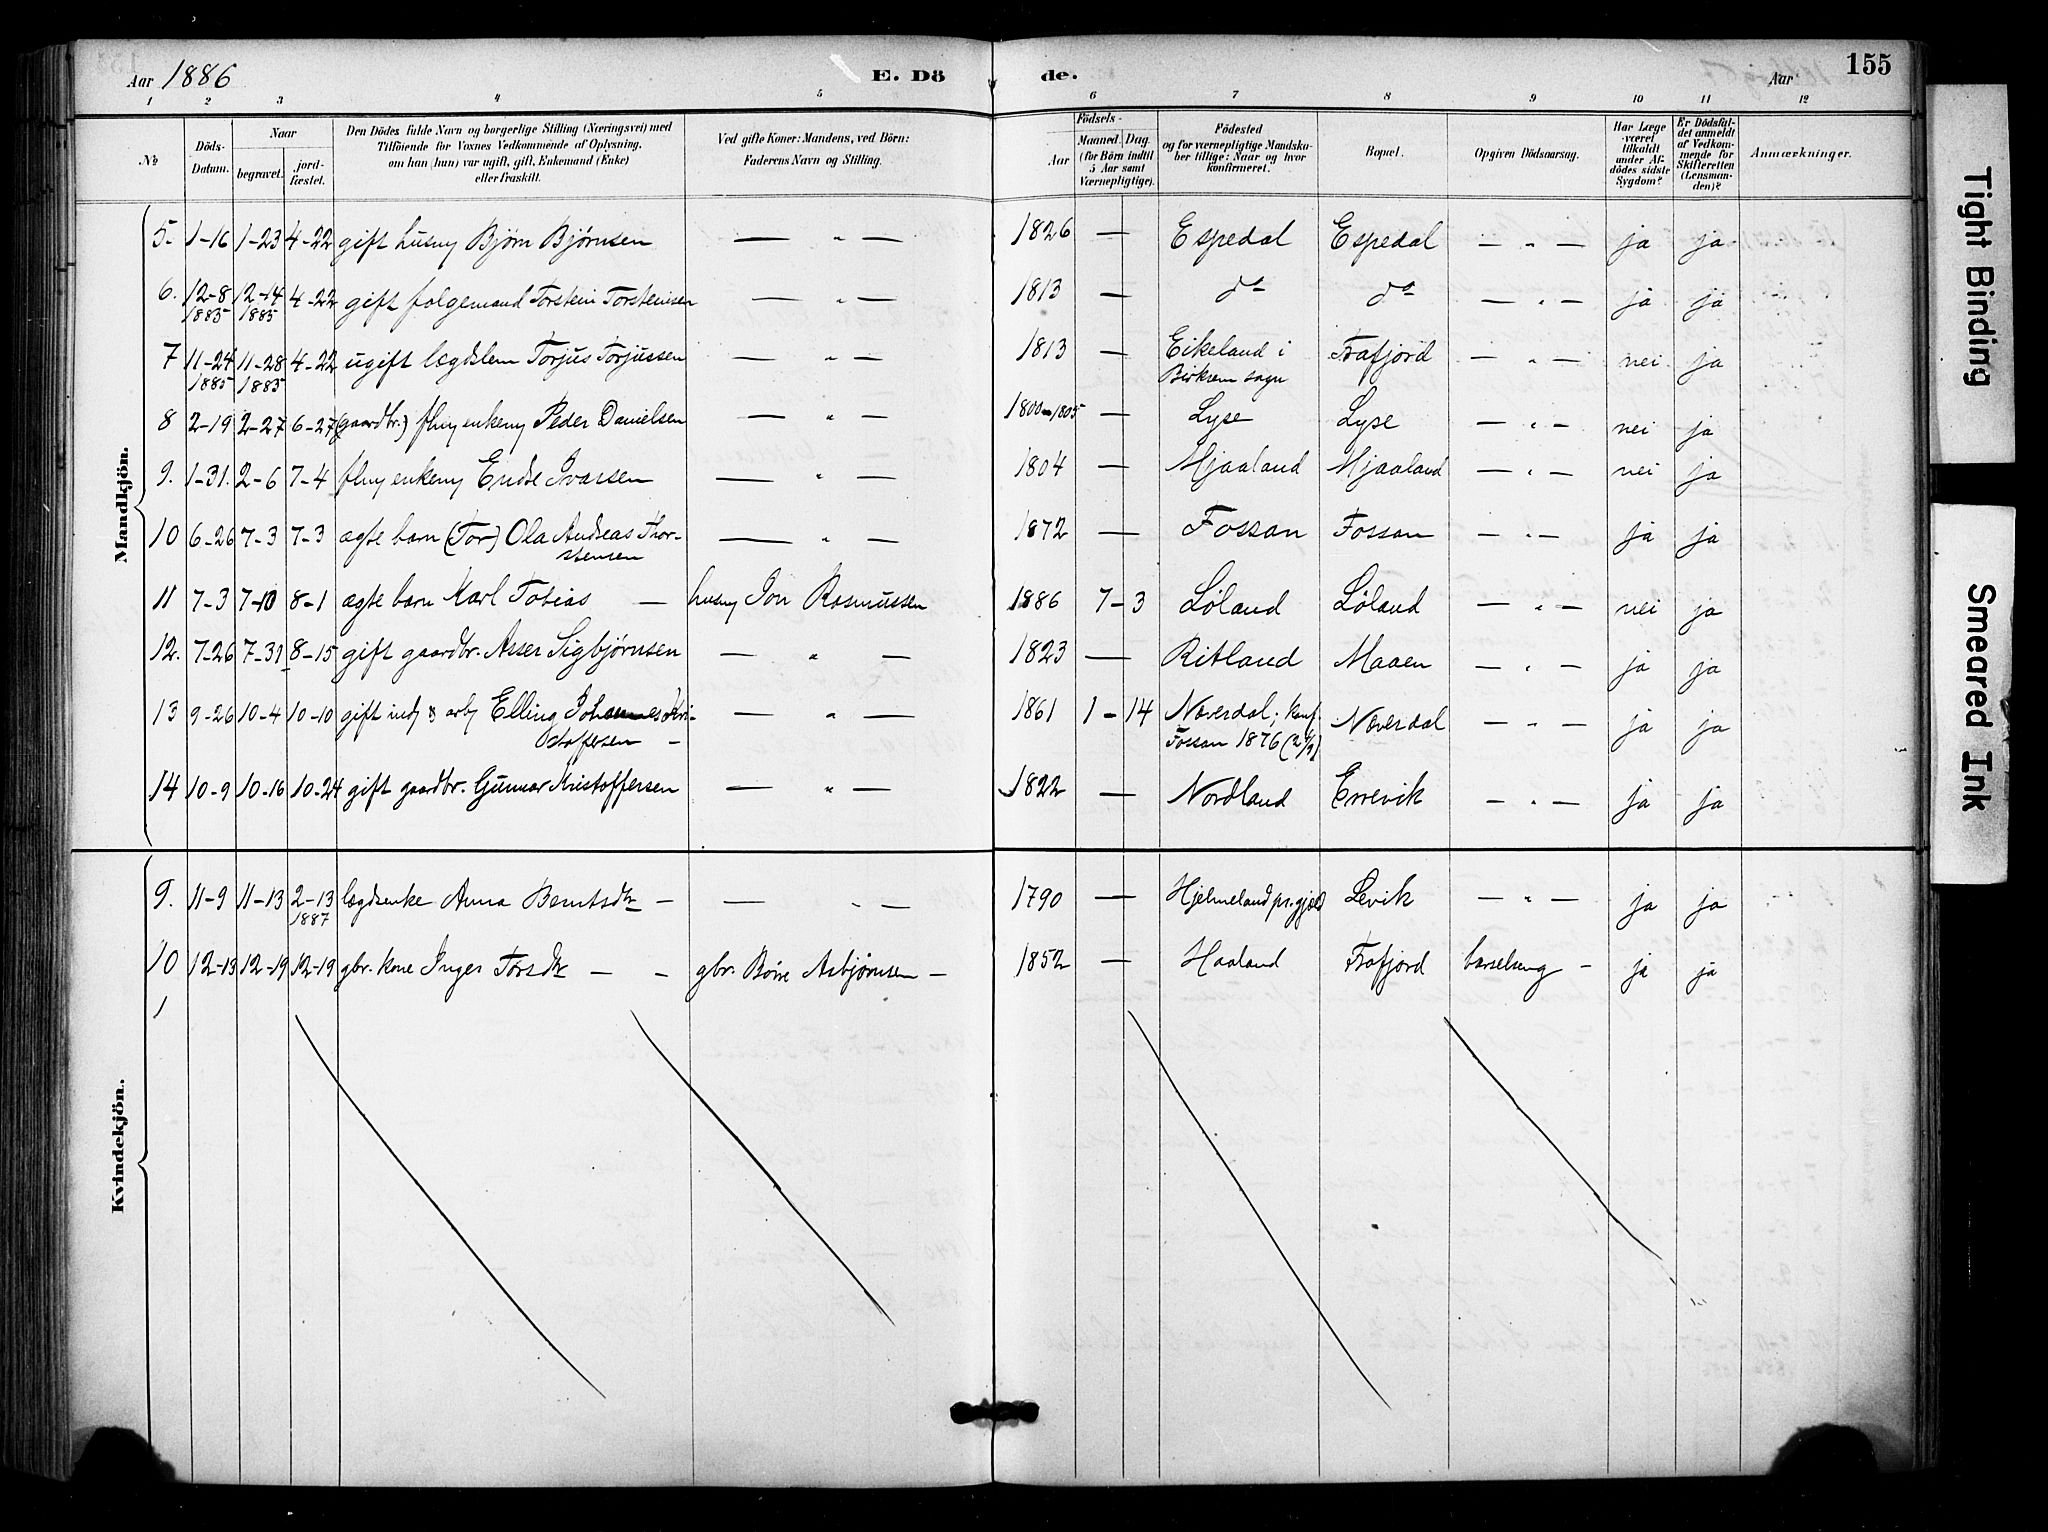 Aar 1886 E. Dö de. Aar 155
1 2 3 4 5 6 7 8 9 10 11 12
No
Döds-
Datum.
Naar
begravet.
jord-
fæstet.
Den Dödes fulde Navn og borgerlige Stilling (Næringsvei) med
Tilföiende for Voxnes Vedkommende af Oplysning,
om han (hun) var ugift, gift, Enkemand (Enke)
eller fraskilt.
Ved gifte Koner: Mandens, ved Börn:
Faderens Navn og Stilling.
Födsels-
Aar
Maaned. Dag.
(for Börn indtil
5 Aar samt
Værnepligtige).
Födested
og for værnepligtige Mandska-
ber tillige: Naar og hvor
konfirmeret.
Bopæl.
Opgiven Dödsaarsag.
Har Læge
været
tilkaldt
under Af-
dödes sidste
Sygdom?
Er Dödsfal-
det anmeldt
af Vedkom-
mende for
Skifteretten
(Lensman-
den)?
Anmærkninger.
Mandkjön.
5. 1-16 1-23 4-22 gift husm Bjørn Bjørnsen — " — 1826 — Espedal Espedal — " — ja ja
6. 12-8 12-14 4-22 gift folgemand Torstein Torsteinsen — " — 1813 — do do — " — ja ja
1885 1885
7 11-24 11-28 4-22 ugift lægdslem Torjus Torjussen — " — 1813 — Eikeland i Frafjord — " — nei ja
1885 1885 Birkrem sogn
8 2-19 2-27 6-27 (gaardbr.) flm enkem Peder Danielsen — " — 1800-1805 — Lyse Lyse — " — nei ja
9. 1-31. 2-6 7-4 flm enkem Endre Ivarsen — " — 1804 — Mjaaland Mjaaland — " — nei ja
10 6-26 7-3 7-3 ægte barn (Tor) Ola Andreas Thor- — " — 1872 — Fossan Fossan — " — ja ja
stensen
11 7-3 7-10 8-1 ægte barn Karl Tobias — husm Jon Rasmussen 1886 7-3 Løland Løland — " — nei ja
12. 7-26 7-31 8-15 gift gaardbr. Asser Sigbjørnsen — " — 1823 — Ritland Maaen — " — ja ja
13 9-26 10-4 10-10 gift indj & arb Elling Johannes Kri- — " — 1861 1-14 Næverdal; konf. Næverdal — " — ja ja
stofersen — Fossan 1876 (2/9)
14 10-9 10-16 10-24 gift gaardbr. Gunnar Kristoffersen — " — 1822 — Nordland Errevik — " — ja ja
Kvindekjön.
9. 11-9 11-13 2-13 lægdsenke Anna Berntsdtr — — " — 1790 — Hjelmeland pr.gjeld Levik — " — ja ja
1887
10 12-13 12-19 12-19 gbr. kone Inger Torsdtr — — gbr. Børre Asbjørnsen — 1852 — Haaland Frafjord barselseng — ja ja
Tight Binding
Smeared Ink